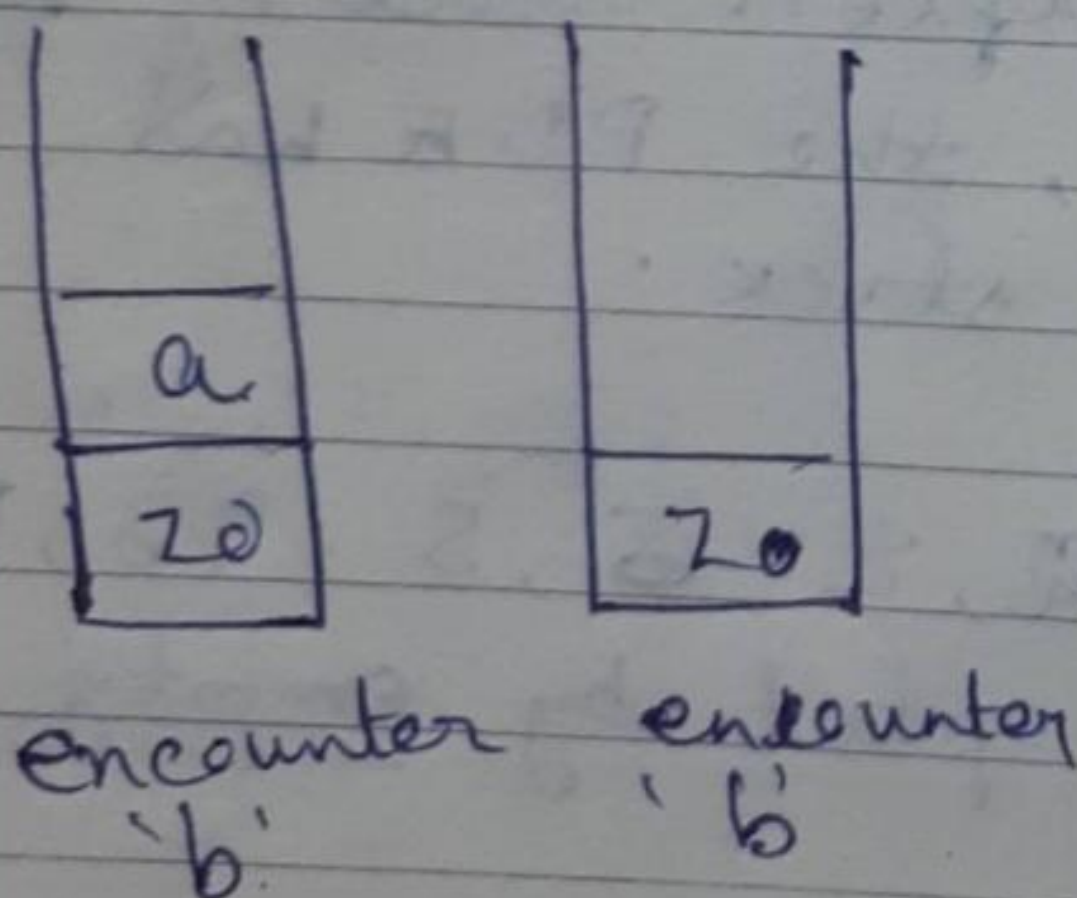 a
Z0 Z0
encounter encounter
'b' 'b'